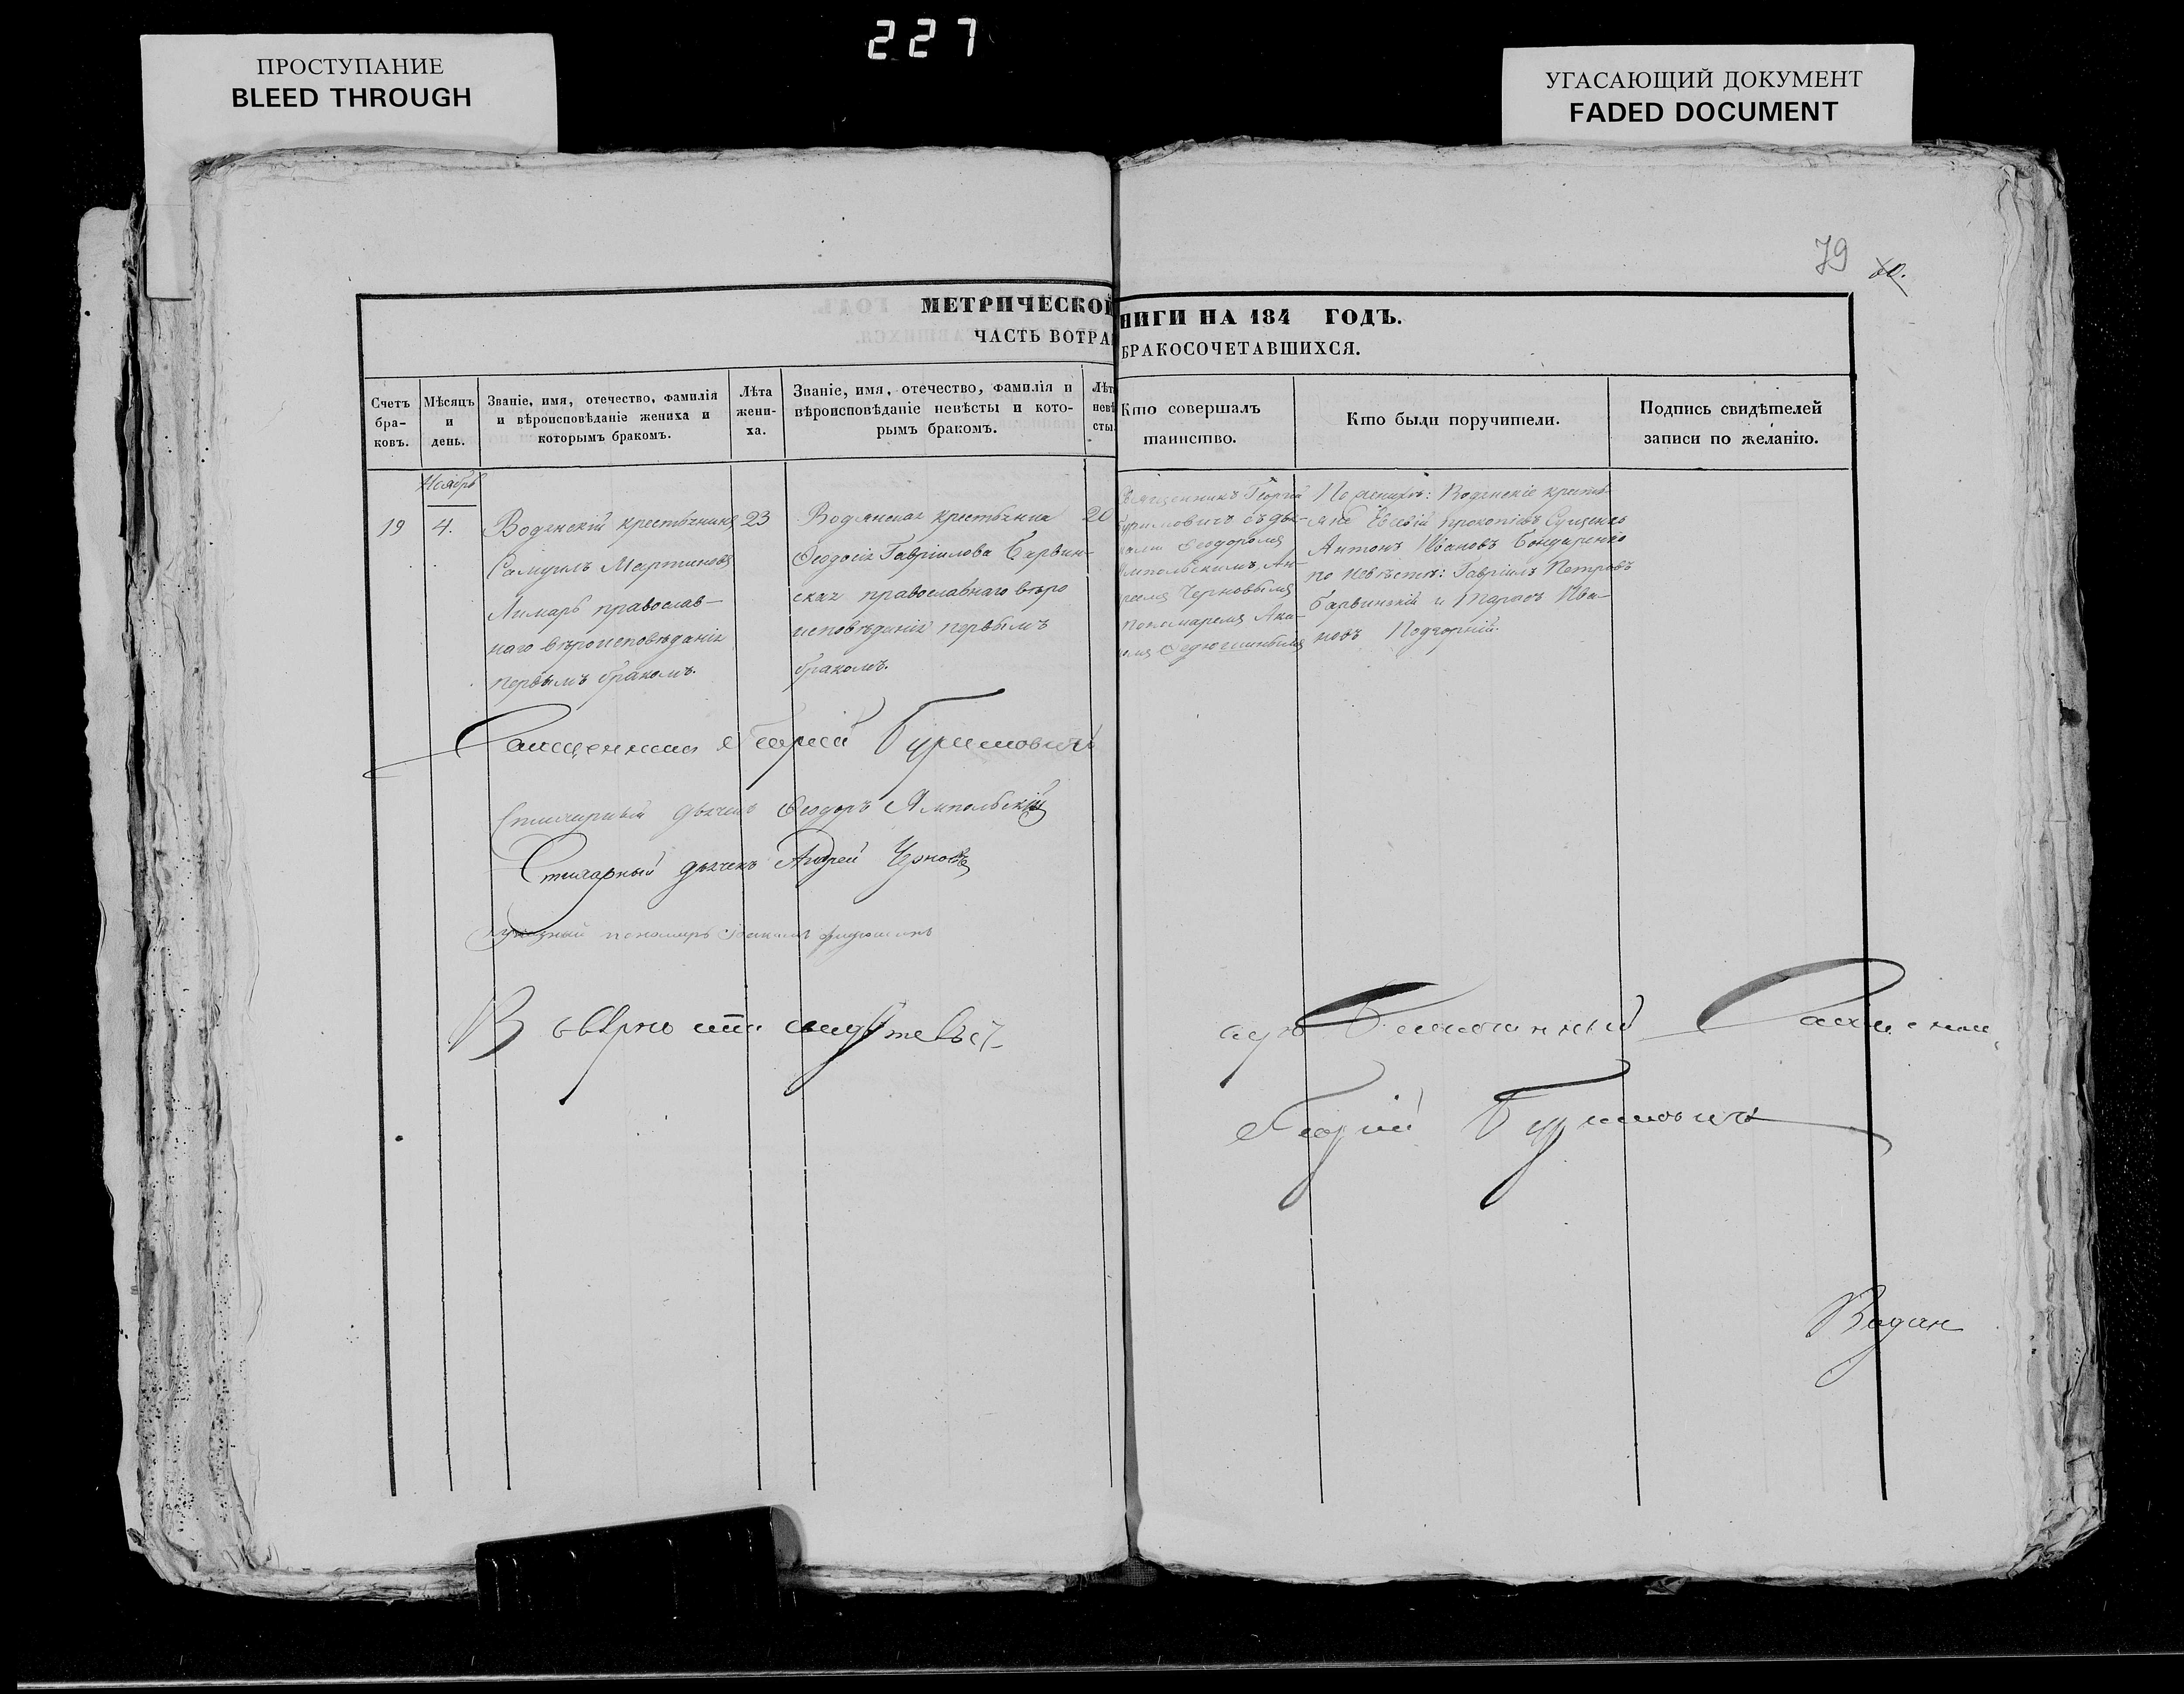 227
ПРОСТУПАНИЕ
BLEED THROUGH
УГАСАЮЩИЙ ДОКУМЕНТ
FADED DOCUMENT
79
МЕТРИЧЕСКОЙ
ЧАСТЬ ВОТРА
НИГИ НА 184 ГОДЪ.
БРАКОСОЧЕТАВШИХСЯ.
Счетъ бра-ковъ.
Мѣсяцъ и день.
Званіе, имя, отечество, фамилія и вѣроисповѣданіе жениха и которымъ бракомъ.
Лѣта жени-ха.
Званіе, имя, отечество, фамилія и вѣроисповѣданіе невѣсты и кото-рымъ бракомъ.
Лѣт невѣ сты
Кто совершалъ таинство.
Кто были поручители.
Подпись свидѣтелей записи по желанію.
Ноябрь
19
4.
Водянскій крестьянинъ
Самуилъ Мартиновъ
Лимарь православ-
наго вѣроисповѣданія
первымъ бракомъ.
23
Водянская крестьянка
Феодосія Гавріилова Барвин-
ская православнаго вѣро
исповѣданія первымъ
бракомъ.
20
Священникъ Георгій
Буримовичъ съ дья-
Феодоромъ
Ямпольскимъ, Ан-
Черновымъ
Пономаремъ Аки-
По женихѣ: Водянскіе кресть-
яне Евсевій Прокопіевъ Сущенко
Антонъ Ивановъ Бондаренко
по невѣстѣ: Гавріилъ Петровъ
Барвинскій и Тарасъ Ива-
новъ Подгорній.
Священникъ Георгій Буримовичъ
Стихарный дьячекъ Феодоръ Ямпольскій
Стихарный дьячекъ Андрей Черновъ
пономарь
Георгій Буримовичъ
Водян